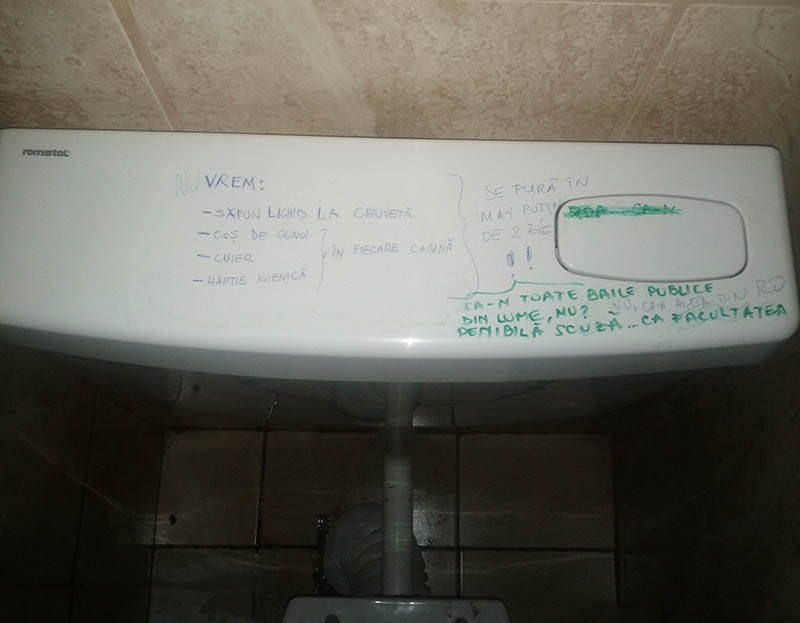 romstal
NU VREM:
- SĂPUN LICHID LA CHIUVETĂ
- COȘ DE GUNOI
- CUIER
- HÂRTIE IGIENICĂ
ÎN FIECARE CABINĂ
SE FURĂ ÎN
MAI PUȚIN
DE 2 ZILE
!!
CA-N
CA-N TOATE BĂILE PUBLICE
DIN LUME, NU?
NU, CA-N ALEA DIN RO
PENIBILĂ SCUZĂ... CA FACULTATEA